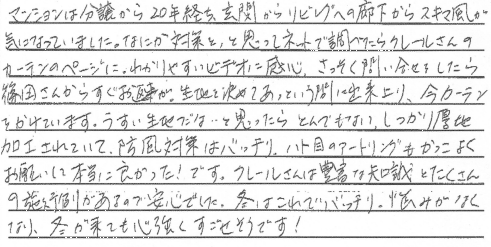 マンションは分譲から20年経ち、玄関からリビングへの廊下からスキマ風が
気になっていました。なにか対策を、と思ってネットで調べたらクレールさんの
カーテンのページに。わかりやすいビデオに感心、さっそく問い合せをしたら
さんからすぐお返事が。生地を決めてあっという間に出来上り、今カーテン
をかけています。うすい生地では…と思ったらとんでもない、しっかり厚地
加工されていて、防風対策はバッチリ、ハト目のアートリングもかっこよく
お願いして本当に良かった!です。クレールさんは豊富な知識とたくさん
の施行例があるので安心でした。冬はこれでバッチリ。悩みがなく
なり、冬が来ても心強くすごせそうです!